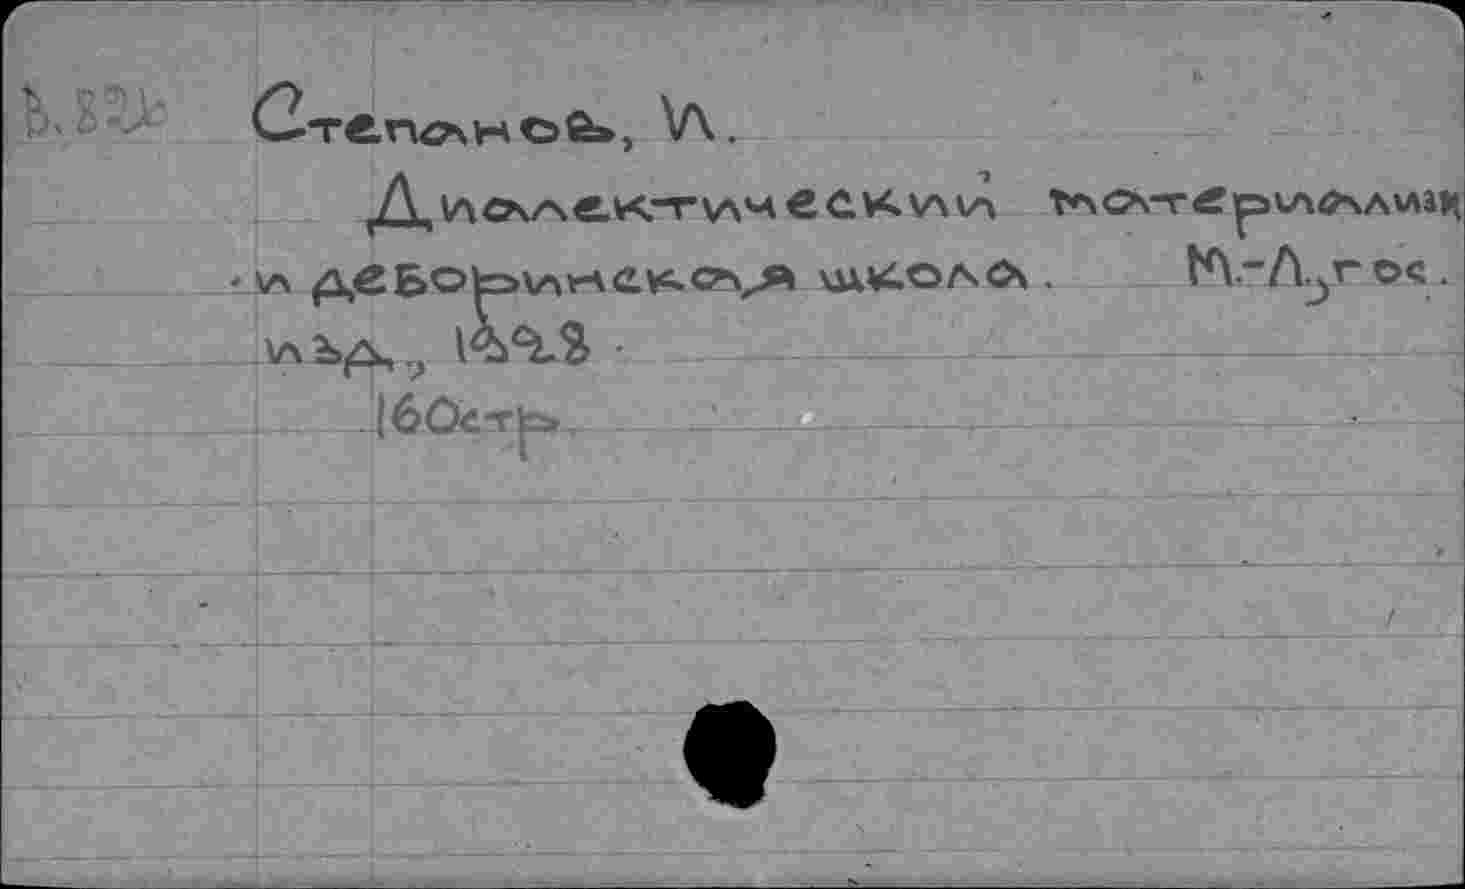 Степанов, И.
Диалектический материализм
и деборинская школа. М.-Л., гос.
изд., 1928.
160стр.